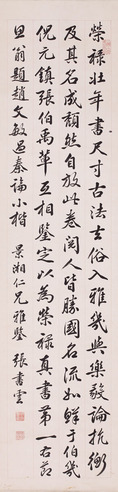 榮祿壯年書尺寸古法去俗入雅幾與樂毅論抗衡
及其名成頹然自放此卷閱人皆勝國名流如鮮于伯幾
倪元鎮張伯雨輩互相鑒定以為榮祿真書第一右節
思翁題趙文敏過秦論小楷
景湘仁兄雅鑒 張書雲